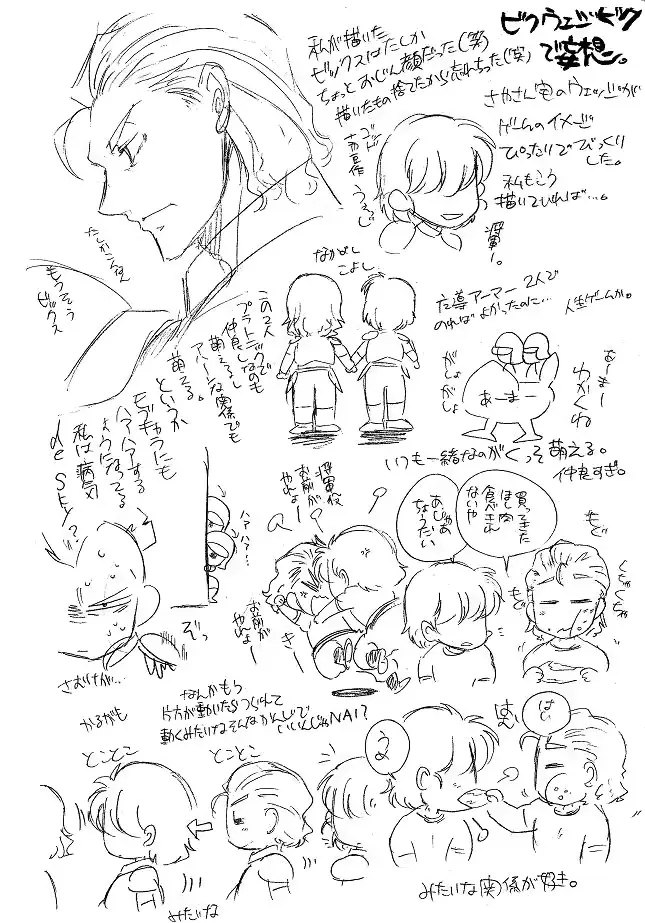 ビクウェッジビック
で妄想。
私が描いた
ビックスはたしか
ちょっとおじん顔だった(笑)
描いたもの捨てたから忘れちった(笑)
さやさん宅のウェッジが
ゲームのイメージ
ぴったりでびっくり
しました。
私もこう
描いていれば…。
将軍ー。
もうそう
ビックス
なかよし
こよし
この2人
プラトニックで
仲良しなのも
萌えるし
アハーンな関係でも
萌える。
というか
モブキャラにも
ハアハアする
ようになってる
私は病気
de SKY?
魔導アーマー2人で
のればよかったのに…
人生ゲームか。
がしょ
がしょ
あーまー
いつも一緒なのがくって萌える。
仲良すぎ。
ハアハア…
将軍役
お前が
やれよー
お前が
やれよー
あじゃあ
ちょうだい
買ってきた
ほし肉
食べきん
ないや
もぐ
もぐ
くちゃくちゃ
ぞっ
さむけが…
かるがも
なんかもう
片方が動いたらつられて
動くみたいなそんなかんじで
いいんじゃNAI?
とことこ
とことこ
はい
みたいな
みたいな関係が好き。